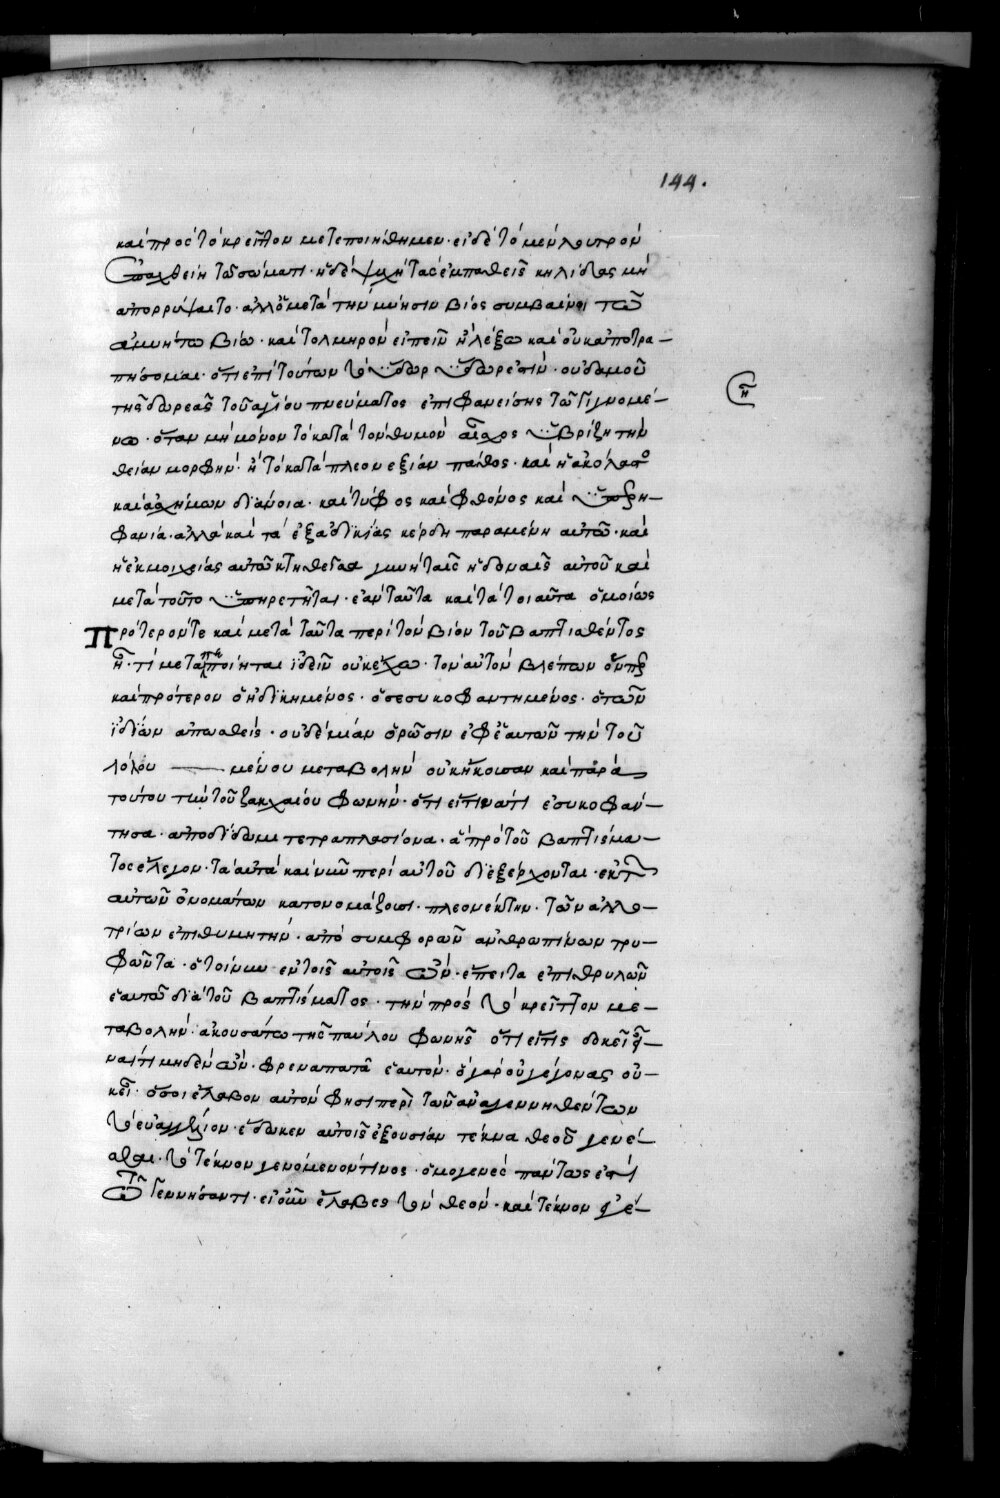 144.
καὶ πρὸς τὸ κρεῖττον μετεποιήθημεν· εἰ δὲ τὸ μὲν λουτρὸν
ἐπαχθείη τῶ σώματι· ἡ δὲ ψυχὴ τὰς ἐμπαθεῖς κηλίδας μὴ
ἀπορρύψαιτο· ἀλλ' ὁ μετὰ τὴν μύησιν βίος συμβαίνοι τῶ
ἀμυήτω βίω· καὶ τολμηρὸν εἰπεῖν ἢ λέξω καὶ οὐκ ἀποτρα-
πήσομαι· ὅτι ἐπὶ τούτων τὸ ὕδωρ ὕδωρ ἐστίν· οὐδαμοῦ
τῆς δωρεᾶς τοῦ ἁγίου πνεύματος ἐπιφανείσης τῶ γιγνομέ-
νω· ὅταν μὴ μόνον τὸ κατὰ τὸν θυμὸν αἶσχος ὑβρίζη τὴν
θείαν μορφήν· ἢ τὸ κατὰ πλεονεξίαν πάθος· καὶ ἡ ἀκόλαστο
καὶ ἀσχήμων διάνοια· καὶ τύφος καὶ φθόνος καὶ ὑπερη-
φανία· ἀλλὰ καὶ τὰ ἐξ ἀδικίας κέρδη παραμένη αὐτῶ· καὶ
ἡ ἐκ μοιχείας αὐτῶ κτηθεῖσα γυνὴ ταῖς ἡδοναῖς αὐτοῦ καὶ
μετὰ τοῦτο ὑπηρετῆται· ἐὰν ταῦτα καὶ τὰ τοιαῦτα ὁμοίως
πρότερόν τε καὶ μετὰ ταῦτα περὶ τὸν βίον τοῦ βαπτισθέντος
ἦ· τί μεταπεποίηται ἰδεῖν οὐκ ἔχω· τὸν αὐτὸν βλέπων ὅνπερ
καὶ πρότερον ὁ ἠδικημένος· ὁ σεσυκοφαντημένος· ὁ τῶν
ἰδίων ἀπωσθείς· οὐδεμίαν ὁρῶσιν ἐφ' ἑαυτῶν τὴν τοῦ
λόλου —— μένου μεταβολὴν οὐκ ἤκουσαν καὶ παρὰ
τούτου τὴν τοῦ ζακχαίου φωνήν· ὅτι εἴ τινά τι ἐσυκοφάν-
τησα· ἀποδίδωμι τετραπλασίονα· ἃ πρὸ τοῦ βαπτίσμα-
τος ἔλεγον· τὰ αὐτὰ καὶ νῦν περὶ αὐτοῦ διεξέρχονται· ἐκ τῶν
αὐτῶν ὀνομάτων κατονομάζουσι· πλεονέκτην· τῶν ἀλλο-
τρίων ἐπιθυμητήν· ἀπὸ συμφορῶν ἀνθρωπίνων τρυ-
φῶντα· ὁ τοίνυν ἐν τοῖς αὐτοῖς ὤν· ἔπειτα ἐπιθρυλῶν
ἑαυτῶ διὰ τοῦ βαπτίσματος· τὴν πρὸς τὸ κρεῖττον με-
ταβολήν· ἀκουσάτω τῆς παύλου φωνῆς ὅτι εἴ τις δοκεῖ εἶ-
ναί τι μηδὲν ὤν· φρεναπατᾶ ἑαυτόν· ὃ γὰρ οὐ γέγονας οὐ-
κ εἶ· ὅσοι ἔλαβον αὐτὸν φησὶ περὶ τῶν ἀναγεννηθέντων
τὸ εὐαγγέλιον· ἔδωκεν αὐτοῖς ἐξουσίαν τέκνα θεοῦ γενέ-
σθαι· τὸ τέκνον γενόμενόν τινος· ὁμογενὲς πάντως ἐστὶ
τῶ γεννήσαντι· εἰ οὖν ἔλαβες τὸν θεόν· καὶ τέκνον γέ-